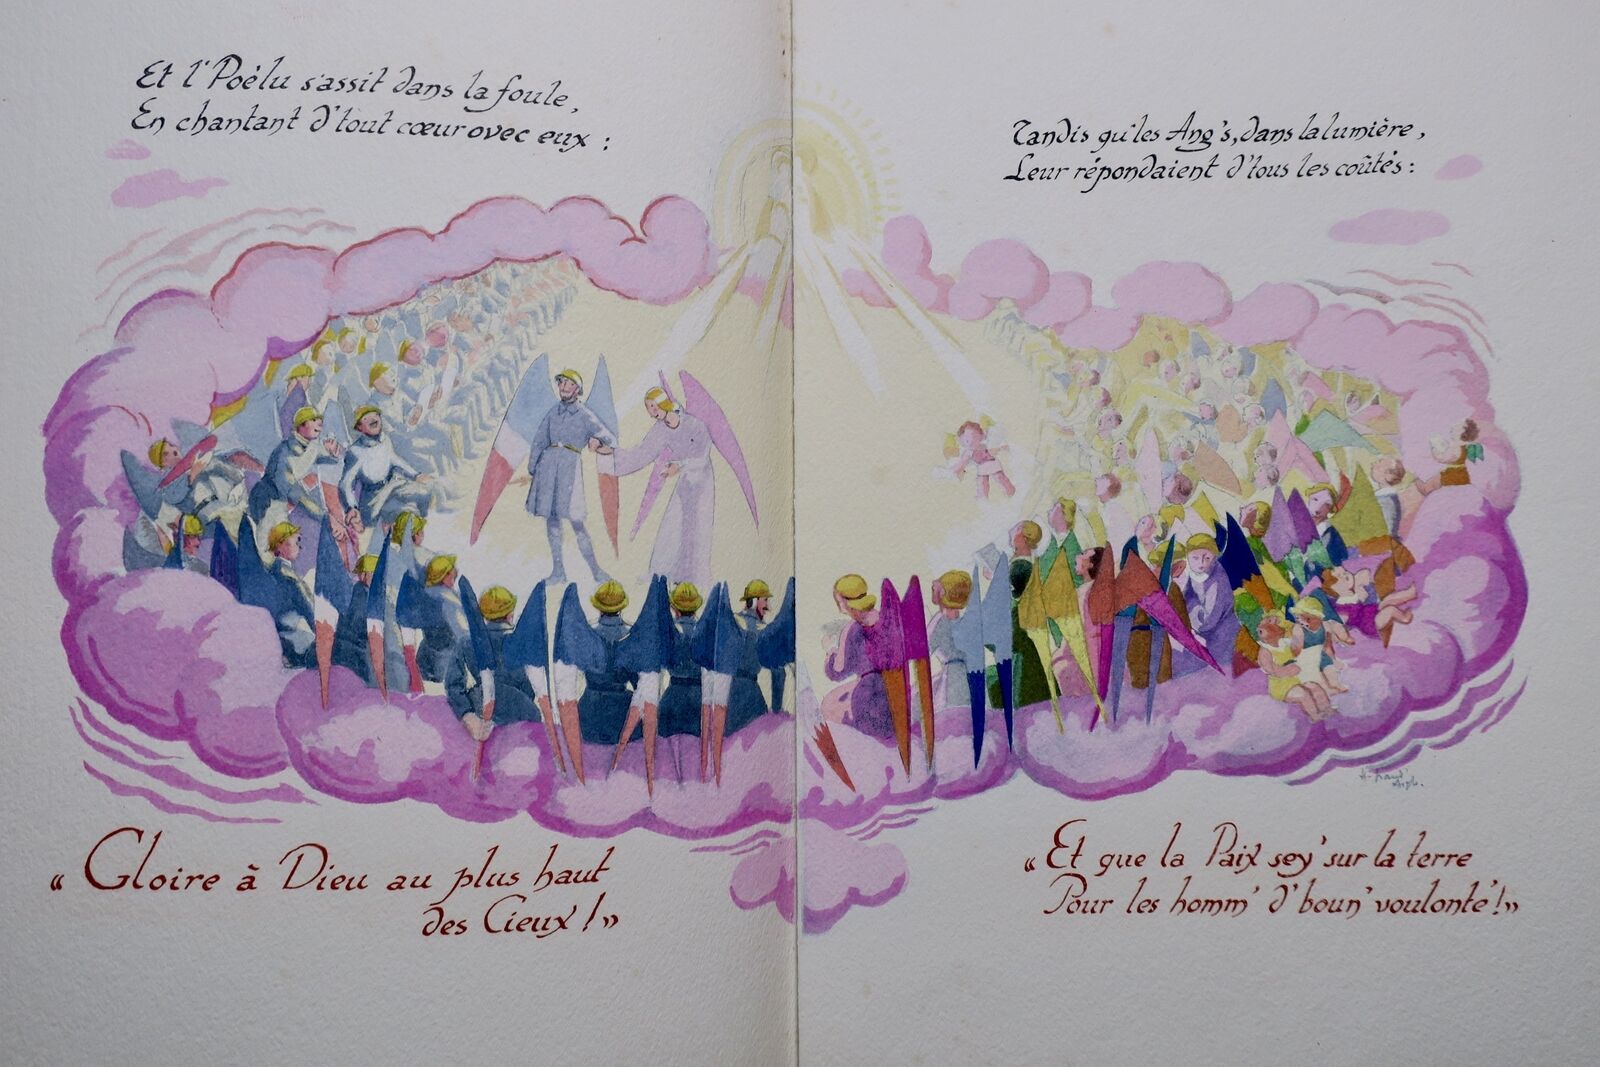 Et l' Poélu s'assit dans la foule,
En chantant d' tout cœur avec eux :
Tandis qu' les Ang's, dans la lumière,
Leur répondaient d' tous les coûtés :
« Gloire à Dieu au plus haut
des Cieux ! »
« Et que la Paix sey' sur la terre
Pour les homm' d' boun' voulonté ! »